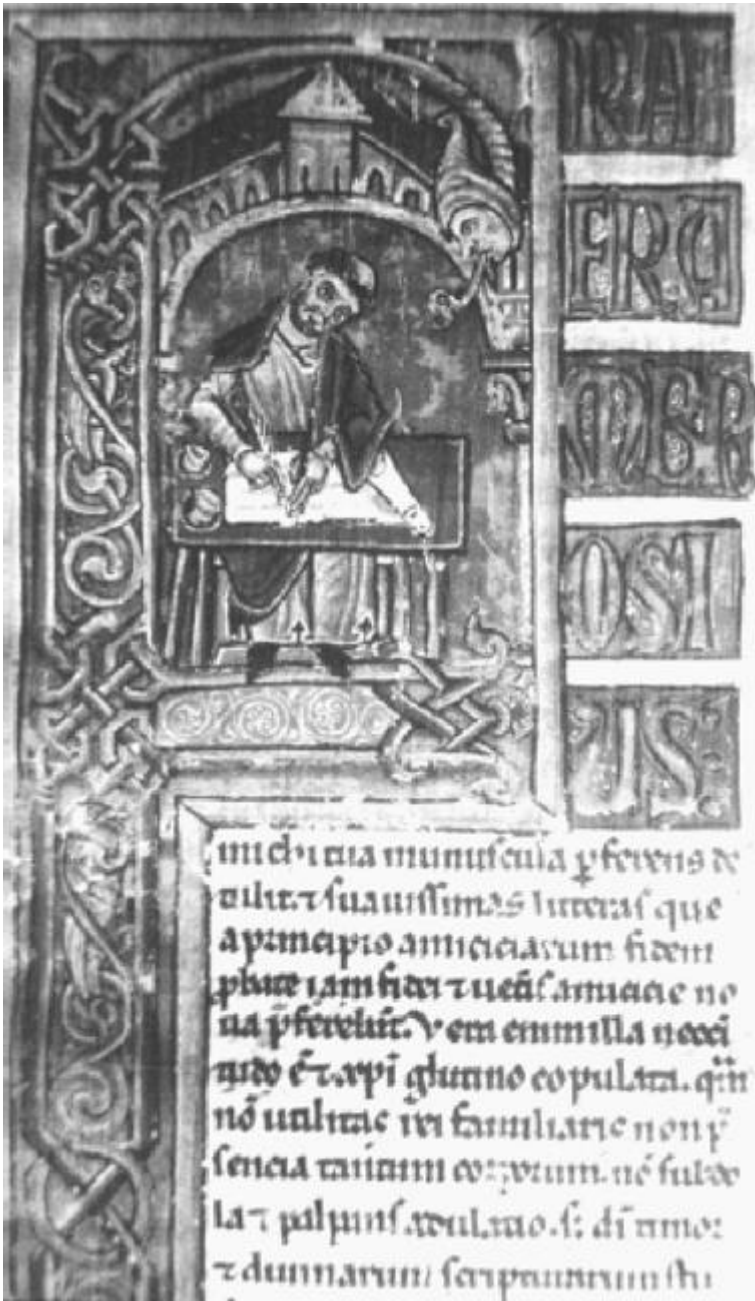 RAT
ER.A
MBR
OSI
US:
michi tua munuscula ꝑferens de
tulit. ⁊ suauissimas litteras que
a principio amiciciarum fidem
ꝓbate iam fidei ⁊ uetis amicicie no
ua p̄ferebat. Vera enim illa necessi
tudo ē ⁊ xpi glutino copulata. quā
nō utilitas rei familiaris non p̄
sencia tantum corporum. nō subdo
la ⁊ palpans adulatio. s; di timor
⁊ diuinarum scripturarum stu